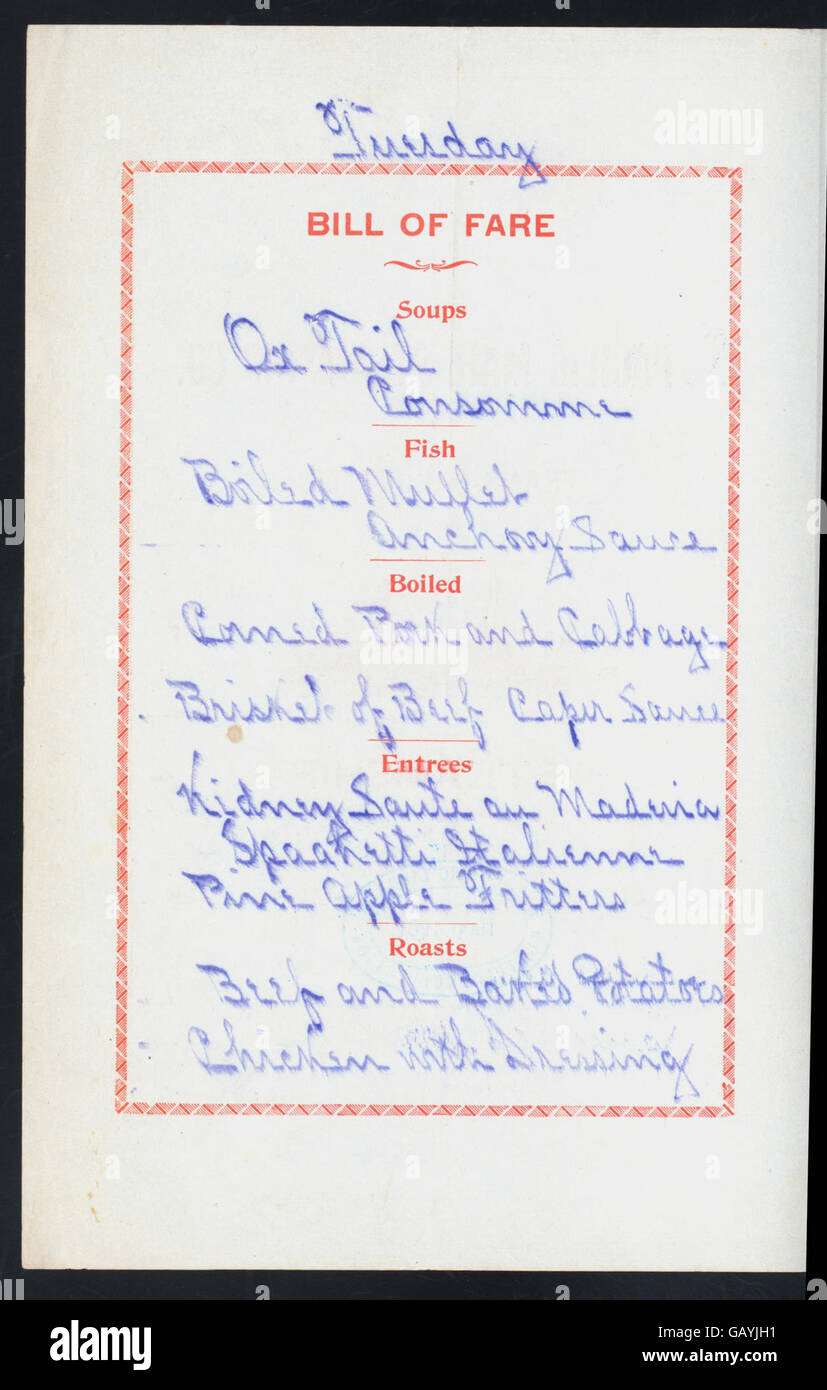 Tuesday
BILL OF FARE
Soups
Ox Tail
Consomme
Fish
Boiled Mullet
Anchovy Sauce
Boiled
Corned Pork and Cabbage
Brisket of Beef Caper Sauce
Entrees
Kidney Saute au Madeira
Spaghetti Italienne
Pine Apple Fritters
Roasts
Beef and Baked Potatoes
Chicken with Dressing
alamy
alamy
alamy
Image ID: GAYJH1
www.alamy.com